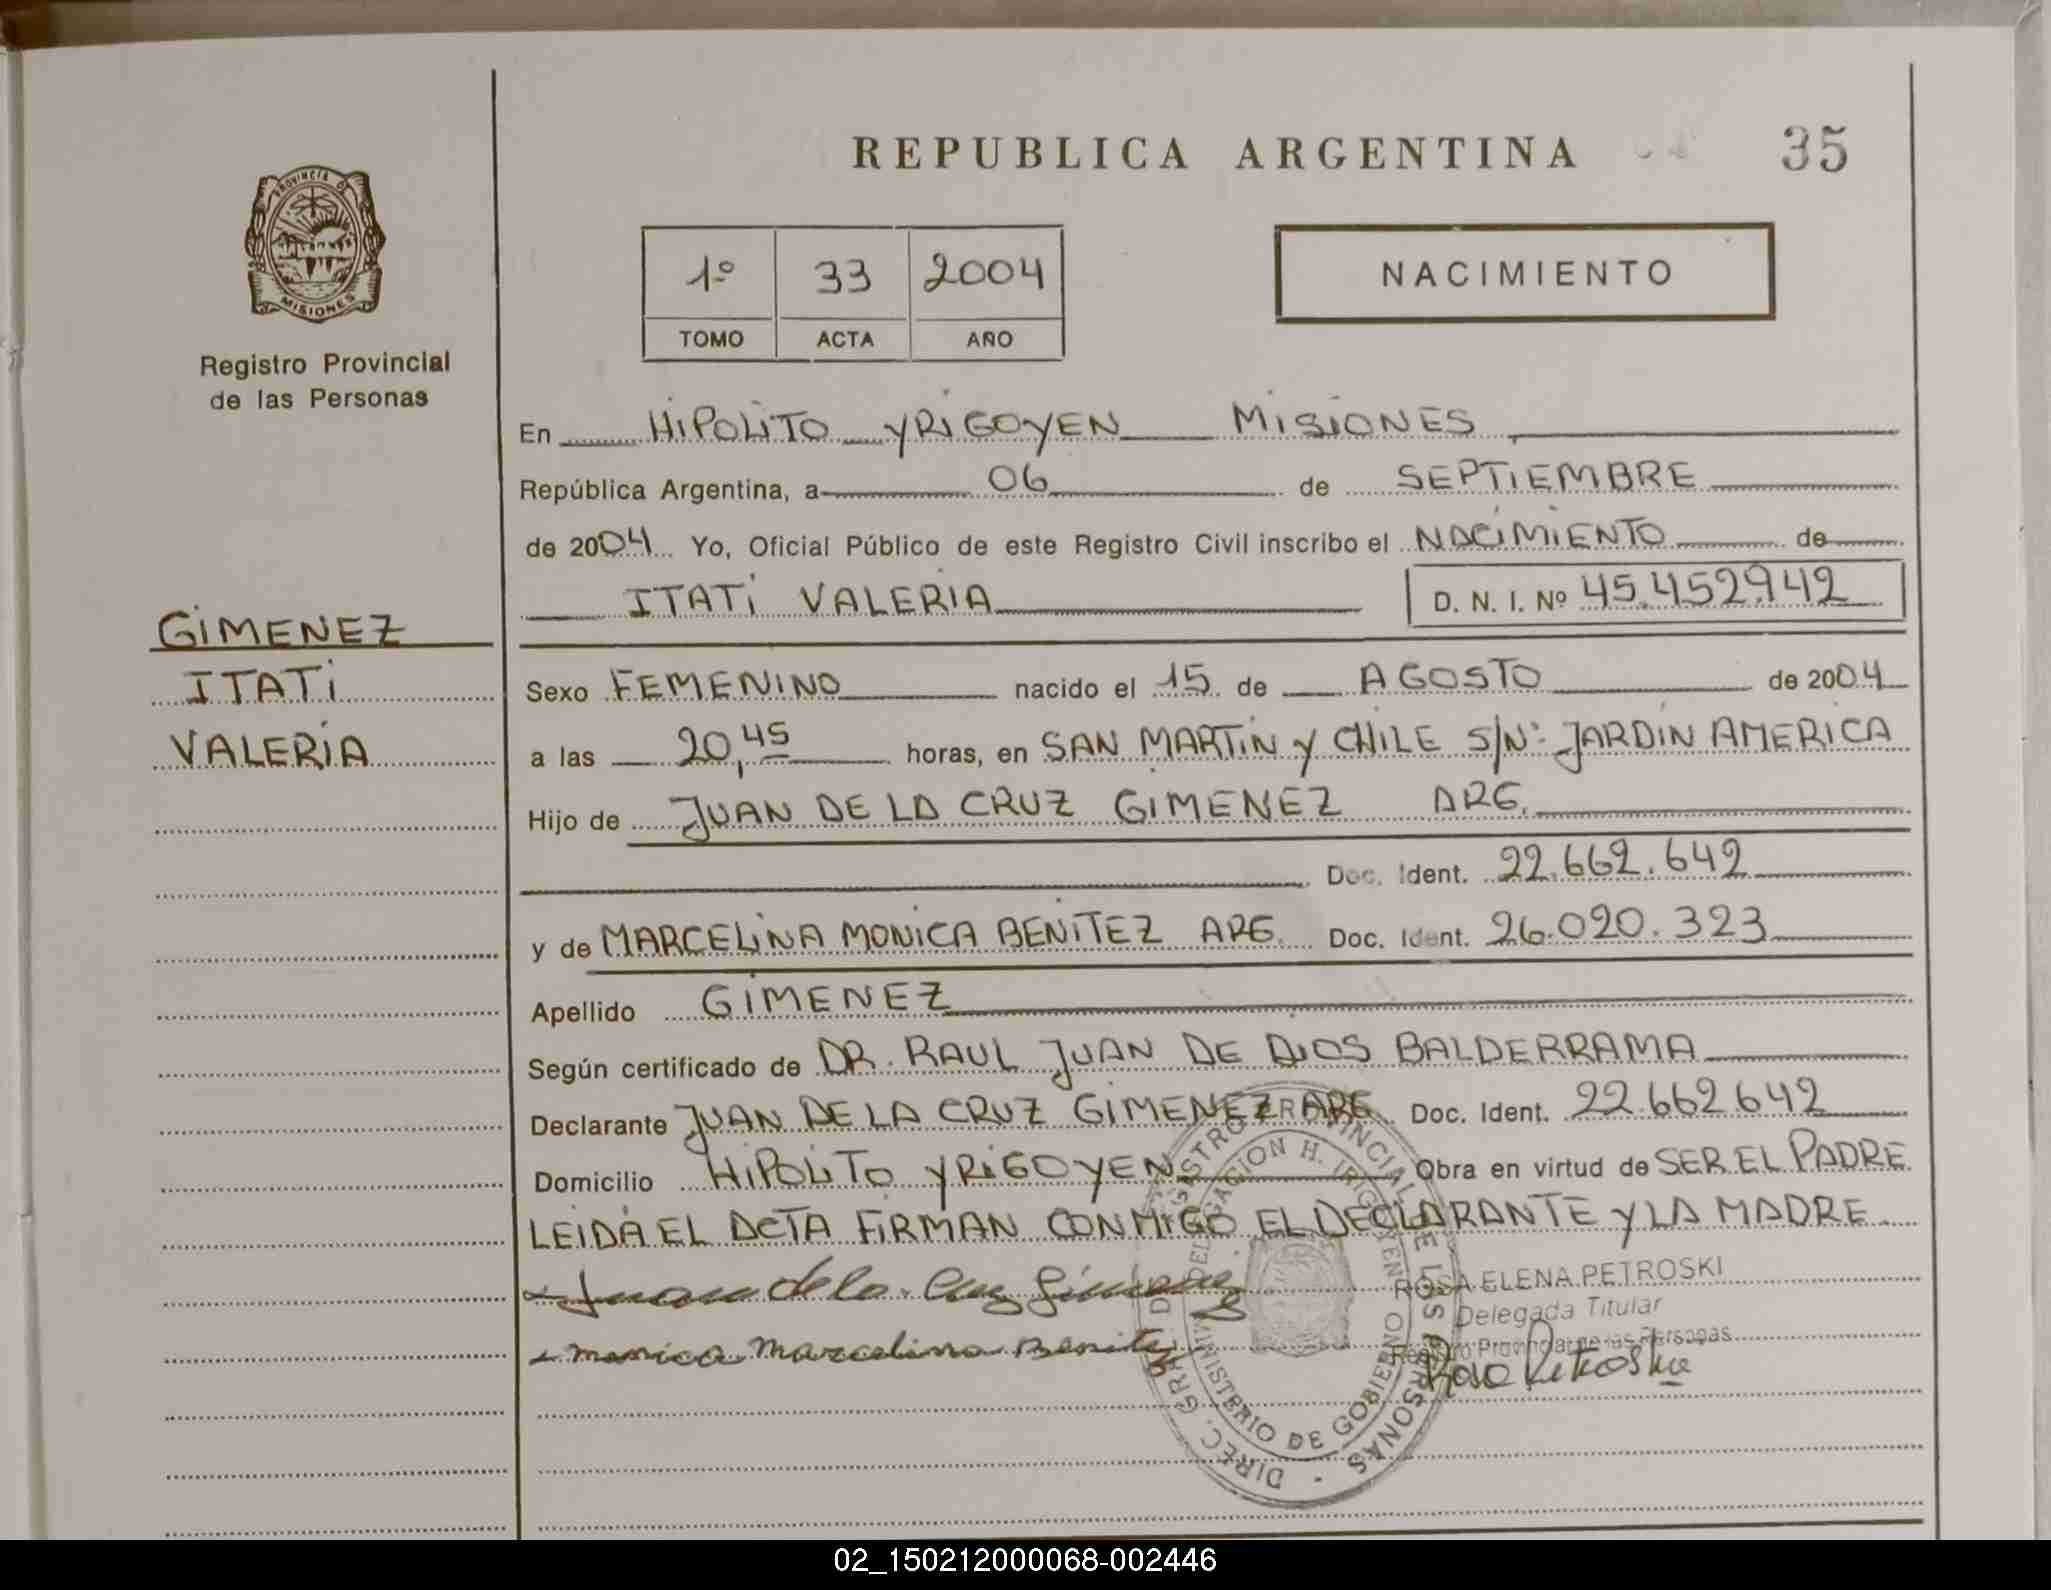 REPUBLICA ARGENTINA 35
PROVINCIA DE
MISIONES
Registro Provincial
de las Personas
1º 33 2004
TOMO ACTA AÑO
NACIMIENTO
En HIPOLITO YRIGOYEN MISIONES
República Argentina, a 06 de SEPTIEMBRE
de 2004 Yo, Oficial Público de este Registro Civil inscribo el NACIMIENTO de
ITATI VALERIA D. N. I. Nº 45.452.942
GIMENEZ
ITATI
VALERIA
Sexo FEMENINO nacido el 15 de AGOSTO de 2004
a las 20,45 horas, en SAN MARTIN Y CHILE S/Nº JARDIN AMERICA
Hijo de JUAN DE LA CRUZ GIMENEZ ARG.
Doc. Ident. 22.662.642
y de MARCELINA MONICA BENITEZ ARG. Doc. Ident. 26.020.323
Apellido GIMENEZ
Según certificado de DR. RAUL JUAN DE DIOS BALDERRAMA
Declarante JUAN DE LA CRUZ GIMENEZ ARG. Doc. Ident. 22.662642
Domicilio HIPOLITO YRIGOYEN Obra en virtud de SER EL PADRE
LEIDA EL ACTA FIRMAN CONMIGO EL DECLARANTE Y LA MADRE
Juan de la Cruz Gimenez
Monica Marcelina Benitez
ROSA ELENA PETROSKI
Delegada Titular
Registro Provincial de las Personas
Rosa Petroski
DIREC. GRAL. DEL REGISTRO PROVINCIAL DE LAS PERSONAS
DELEGACION H. IRIGOYEN
MINISTERIO DE GOBIERNO
02_150212000068-002446